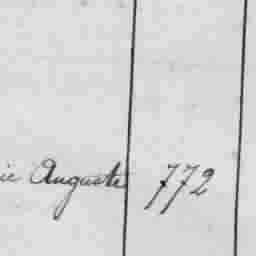 ie Auguste 772